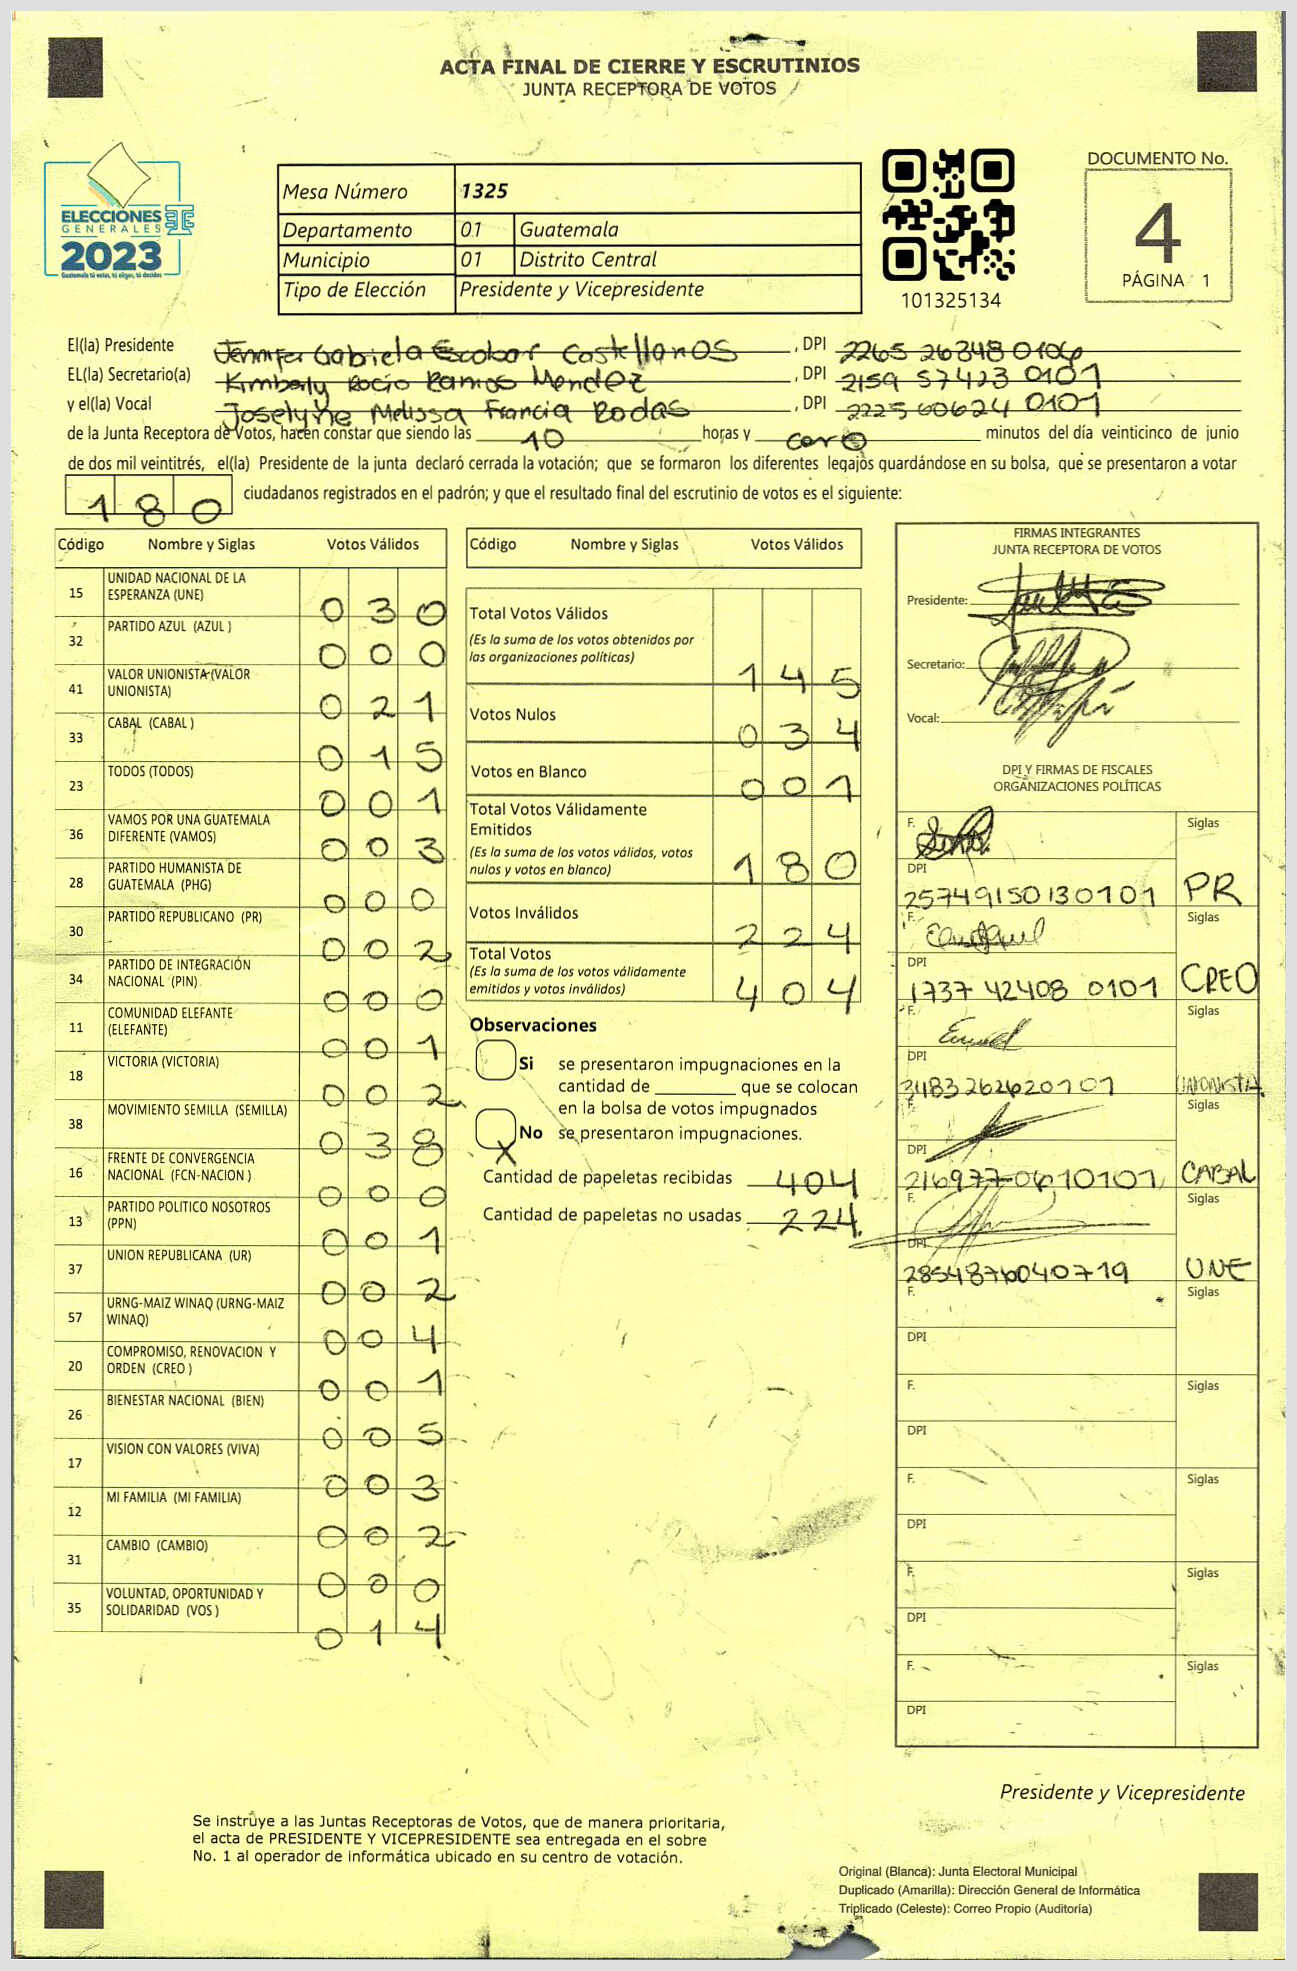 ACTA FINAL DE CIERRE Y ESCRUTINIOS
JUNTA RECEPTORA DE VOTOS
ELECCIONES
GENERALES
2023
Guatemala tú votas, tú eliges, tú decides
Mesa Número 1325
Departamento 01 Guatemala
Municipio 01 Distrito Central
Tipo de Elección Presidente y Vicepresidente
101325134
DOCUMENTO No.
4
PÁGINA 1
El(la) Presidente Jennifer Gabriela Escobar Castellanos , DPI 2265 26348 0106
EL(la) Secretario(a) Kimberly Rocío Ramos Mendez , DPI 2159 57423 0101
y el(la) Vocal Joselyne Melissa Francia Rodas , DPI 2225 60624 0101
de la Junta Receptora de Votos, hacen constar que siendo las 10 horas y cero minutos del día veinticinco de junio
de dos mil veintitrés, el(la) Presidente de la junta declaró cerrada la votación; que se formaron los diferentes legajos guardándose en su bolsa, que se presentaron a votar
180 ciudadanos registrados en el padrón; y que el resultado final del escrutinio de votos es el siguiente:
Código Nombre y Siglas Votos Válidos
15 UNIDAD NACIONAL DE LA ESPERANZA (UNE) 030
32 PARTIDO AZUL (AZUL ) 000
41 VALOR UNIONISTA (VALOR UNIONISTA) 021
33 CABAL (CABAL ) 015
23 TODOS (TODOS) 001
36 VAMOS POR UNA GUATEMALA DIFERENTE (VAMOS) 003
28 PARTIDO HUMANISTA DE GUATEMALA (PHG) 000
30 PARTIDO REPUBLICANO (PR) 002
34 PARTIDO DE INTEGRACIÓN NACIONAL (PIN) 000
11 COMUNIDAD ELEFANTE (ELEFANTE) 001
18 VICTORIA (VICTORIA) 002
38 MOVIMIENTO SEMILLA (SEMILLA) 038
16 FRENTE DE CONVERGENCIA NACIONAL (FCN-NACION ) 000
13 PARTIDO POLITICO NOSOTROS (PPN) 001
37 UNION REPUBLICANA (UR) 002
57 URNG-MAIZ WINAQ (URNG-MAIZ WINAQ) 004
20 COMPROMISO, RENOVACION Y ORDEN (CREO ) 001
26 BIENESTAR NACIONAL (BIEN) 005
17 VISION CON VALORES (VIVA) 003
12 MI FAMILIA (MI FAMILIA) 002
31 CAMBIO (CAMBIO) 000
35 VOLUNTAD, OPORTUNIDAD Y SOLIDARIDAD (VOS ) 014
Código Nombre y Siglas Votos Válidos
Total Votos Válidos
(Es la suma de los votos obtenidos por
las organizaciones políticas) 145
Votos Nulos 034
Votos en Blanco 001
Total Votos Válidamente
Emitidos
(Es la suma de los votos válidos, votos
nulos y votos en blanco) 180
Votos Inválidos 224
Total Votos
(Es la suma de los votos válidamente
emitidos y votos inválidos) 404
Observaciones
Si se presentaron impugnaciones en la
cantidad de ________ que se colocan
en la bolsa de votos impugnados
X No se presentaron impugnaciones.
Cantidad de papeletas recibidas 404
Cantidad de papeletas no usadas 224
FIRMAS INTEGRANTES
JUNTA RECEPTORA DE VOTOS
Presidente:
Secretario:
Vocal:
DPI Y FIRMAS DE FISCALES
ORGANIZACIONES POLÍTICAS
F. Siglas
DPI
2574915030101 PR
F. Siglas
DPI
1737 42408 0101 CREO
F. Siglas
DPI
3483262620101 UNIONISTA
F. Siglas
DPI
2169770610101 CABAL
F. Siglas
DPI
2854876040719 UNE
F. Siglas
DPI
F. Siglas
DPI
F. Siglas
DPI
F. Siglas
DPI
F. Siglas
DPI
Presidente y Vicepresidente
Se instruye a las Juntas Receptoras de Votos, que de manera prioritaria,
el acta de PRESIDENTE Y VICEPRESIDENTE sea entregada en el sobre
No. 1 al operador de informática ubicado en su centro de votación.
Original (Blanca): Junta Electoral Municipal
Duplicado (Amarilla): Dirección General de Informática
Triplicado (Celeste): Correo Propio (Auditoría)